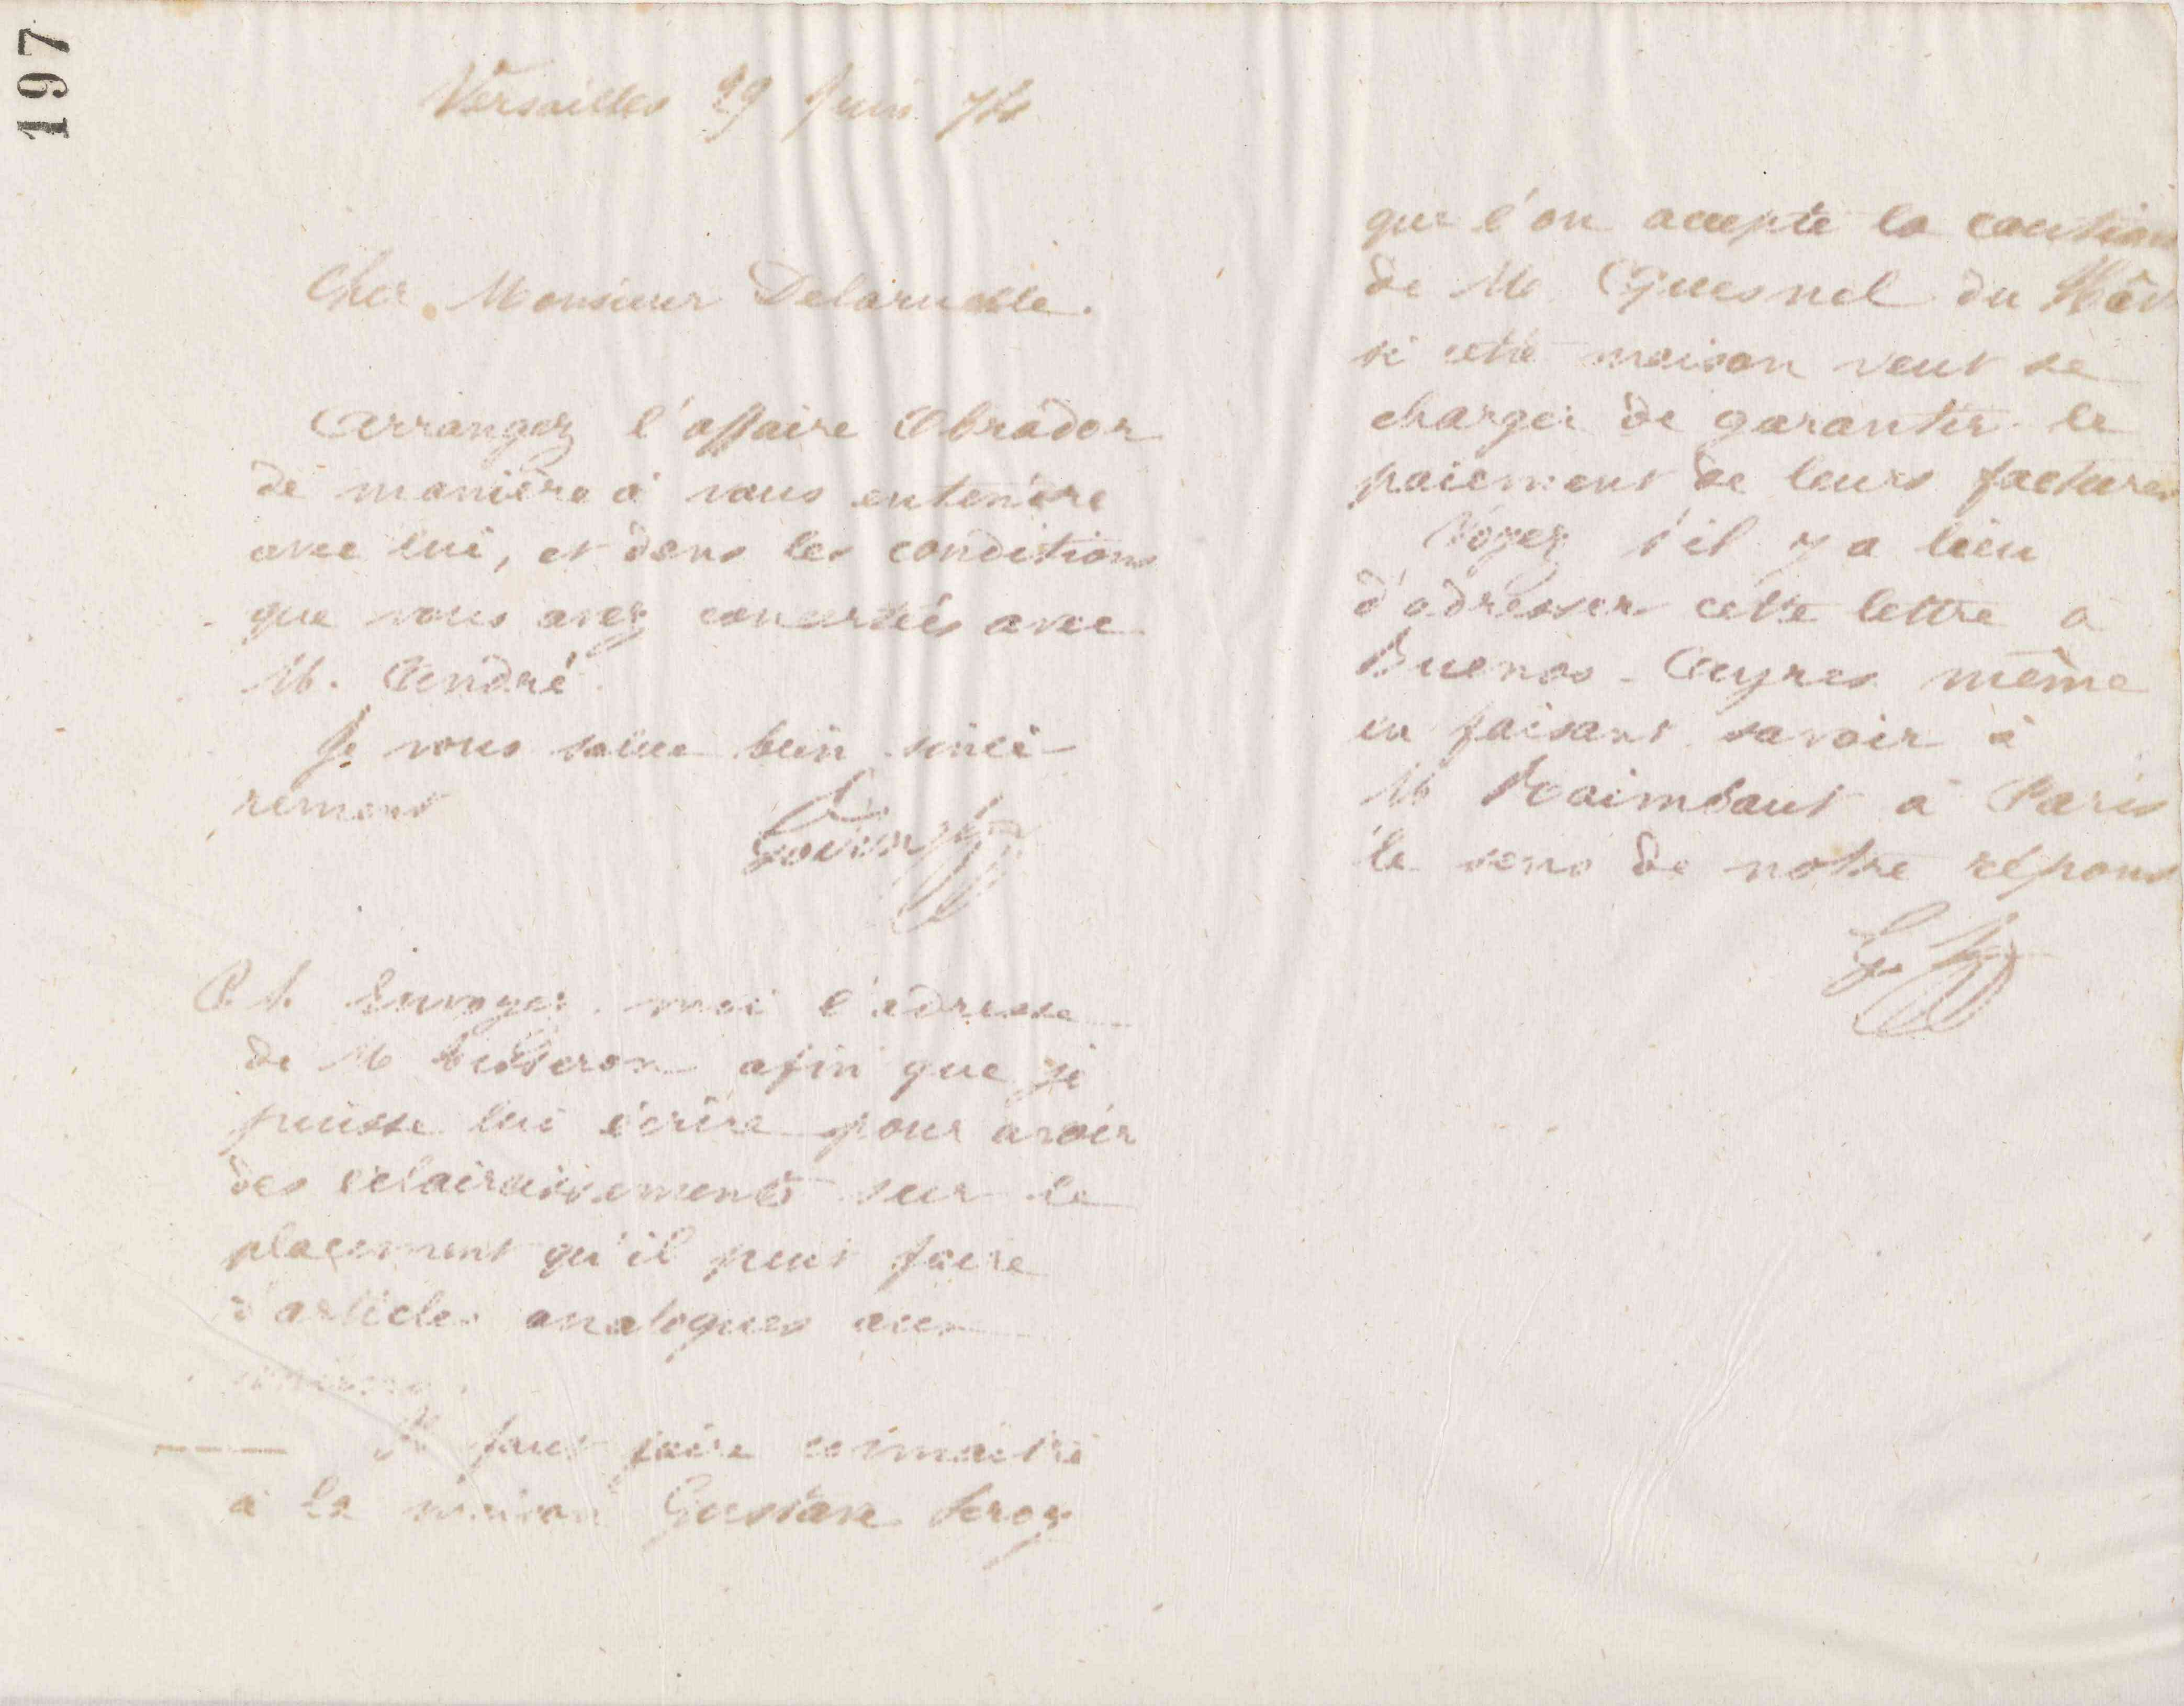 197
Versailles 29 Juin 74
Cher Monsieur Delaruelle.
Arrangez l'affaire Obrador
de manière à vous entendre
avec lui, et dans les conditions
que vous avez concertées avec
M. André.
Je vous salue bien sincè-
rement
Godin
P. S. Envoyez-moi l'adresse
de M. afin que je
puisse lui écrire pour avoir
des éclaircissements sur le
placement qu'il peut faire
d'articles analogues aux
Il faut faire connaître
à la maison Gustave Leroy
que l'on accepte la caution
de M. Quesnel du Hâv
si cette maison veut se
charger de garantir le
paiement de leurs factures
Voyez s'il y a lieu
d'adresser cette lettre à
Buenos-Ayres même
en faisant savoir à
M Raimbaut à Paris
le sens de notre répons